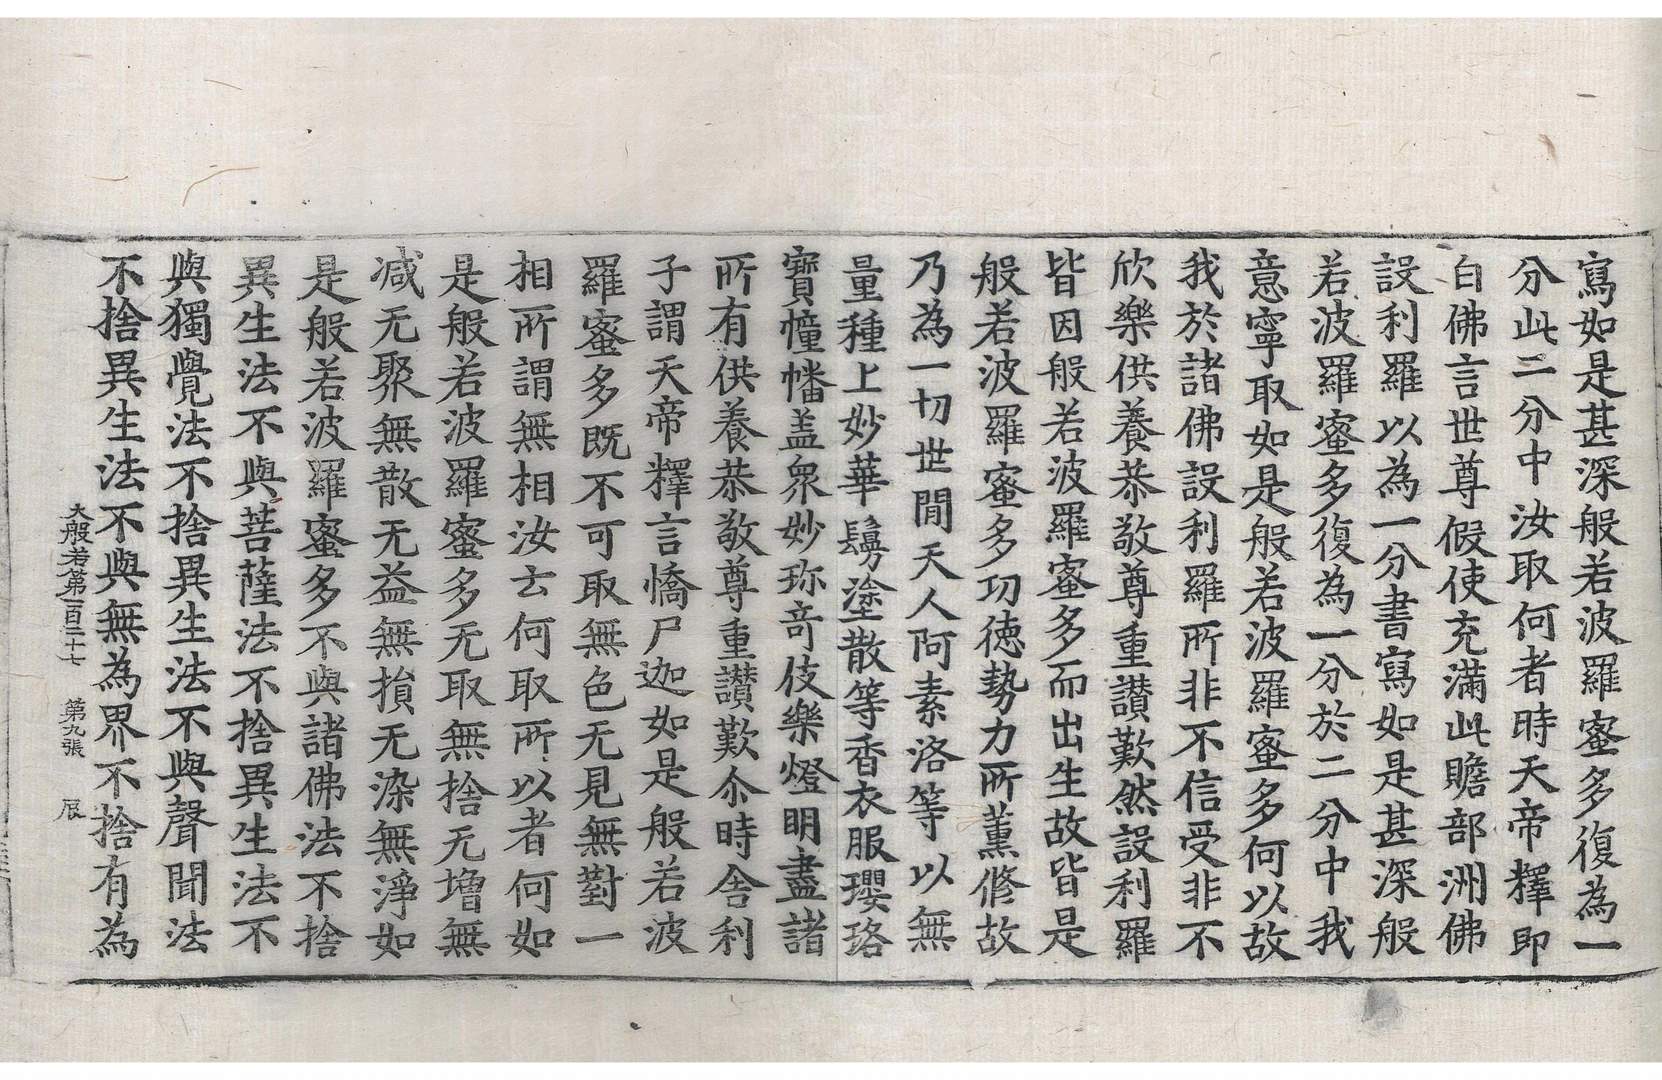 寫如是甚深般若波羅蜜多復為一
分此二分中汝取何者時天帝釋即
白佛言世尊假使充滿此贍部洲佛
設利羅以為一分書寫如是甚深般
若波羅蜜多復為一分於二分中我
意寧取如是般若波羅蜜多何以故
我於諸佛設利羅所非不信受非不
欣樂供養恭敬尊重讃歎然設利羅
皆因般若波羅蜜多而出生故皆是
般若波羅蜜多功德勢力所薰修故
乃為一切世間天人阿素洛等以無
量種上妙華鬘塗散等香衣服瓔珞
寶幢幡盖衆妙珎奇伎樂燈明盡諸
所有供養恭敬尊重讃歎尒時舍利
子謂天帝釋言憍尸迦如是般若波
羅蜜多既不可取無色无見無對一
相所謂無相汝云何取所以者何如
是般若波羅蜜多无取無捨无增無
减无聚無散无益無損无染無淨如
是般若波羅蜜多不與諸佛法不捨
異生法不與菩薩法不捨異生法不
與獨覺法不捨異生法不與聲聞法
不捨異生法不與無為界不捨有為
大般若第一百二十七 第九張 辰